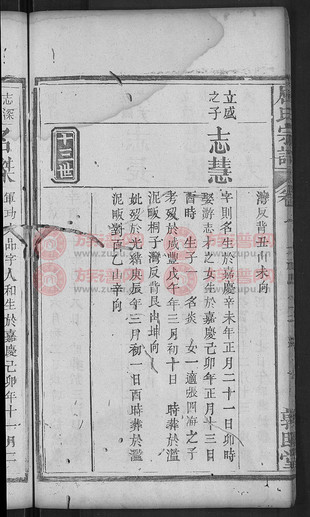 灣反背丑山未向
立盛之子
志慧
字則名生於嘉慶辛未年正月二十一日卯時
娶游志才之女生於嘉慶己卯年正月十三日
酉時 生子一 名炎 女一 適張四海之子
考歿於咸豐戊午年三月初十日 時葬於濫
泥畈桐子灣反背艮山坤向
妣歿於光緒庚辰年三月初一日酉時葬於濫
泥畈劉 乙山辛向
十三世
志深
軍功 品字人和生於嘉慶己卯年十一月二
氏宗譜